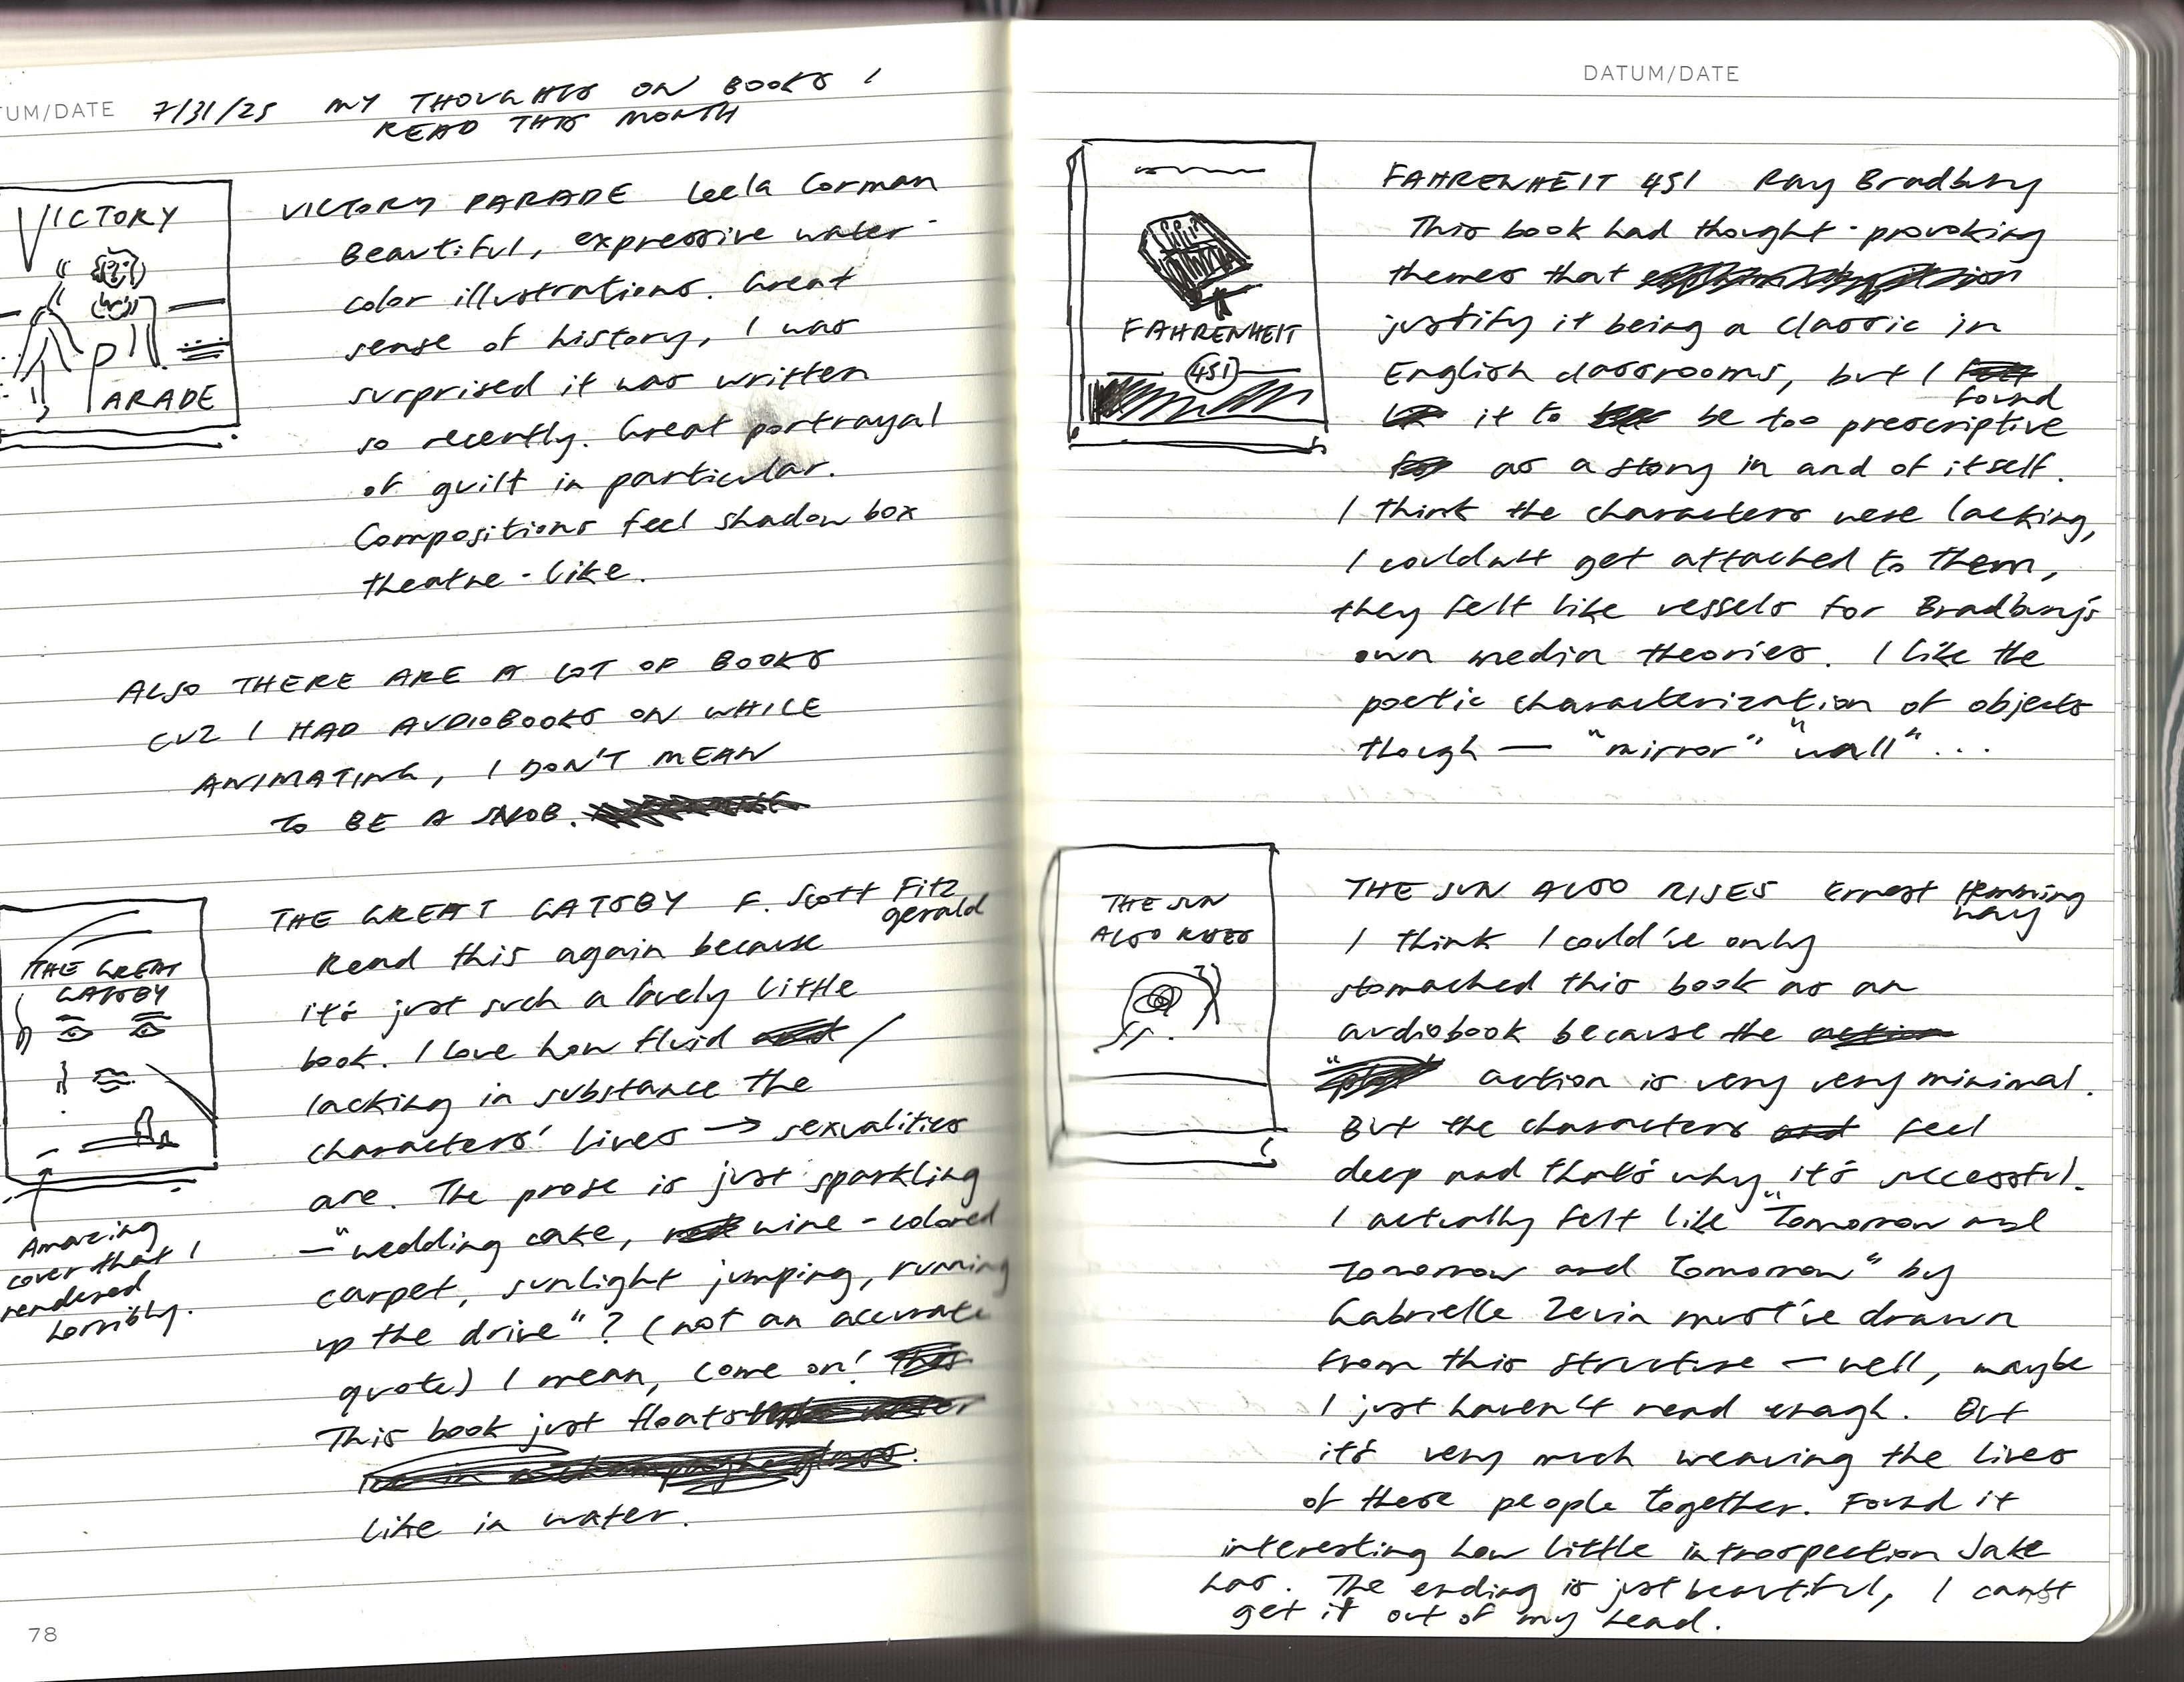 TUM/DATE 7/31/25 MY THOUGHTS ON BOOKS I
READ THIS MONTH
VICTORY
PARADE
VICTORY PARADE Leela Corman
Beautiful, expressive water-
color illustrations. Great
sense of history, I was
surprised it was written
so recently. Great portrayal
of guilt in particular.
Compositions feel shadow box
theatre-like.
ALSO THERE ARE A LOT OF BOOKS
CUZ I HAD AUDIOBOOKS ON WHILE
ANIMATING, I DON'T MEAN
TO BE A SNOB.
THE GREAT
GATSBY
Amazing
cover that I
rendered
horribly.
THE GREAT GATSBY F. Scott Fitz
gerald
Read this again because
it's just such a lovely little
book. I love how fluid /
lacking in substance the
characters' lives → sexualities
are. The prose is just sparkling
— "wedding cake, wine-colored
carpet, sunlight jumping, running
up the drive"? (not an accurate
quote) I mean, come on!
This book just floats
like in water.
78
DATUM/DATE
FAHRENHEIT
451
FAHRENHEIT 451 Ray Bradbury
This book had thought-provoking
themes that
justify it being a classic in
English classrooms, but I
found
it to be too prescriptive
as a story in and of itself.
I think the characters were lacking,
I couldn't get attached to them,
they felt like vessels for Bradbury's
own media theories. I like the
poetic characterization of objects
though — "mirror" "wall" ...
THE SUN
ALSO RISES
THE SUN ALSO RISES Ernest Hemming
way
I think I could've only
stomached this book as an
audiobook because the
action is very very minimal.
But the characters feel
deep and that's why it's successful.
I actually felt like "Tomorrow and
Tomorrow and Tomorrow" by
Gabrielle Zevin must've drawn
from this structure — well, maybe
I just haven't read enough. But
it's very much weaving the lives
of these people together. Found it
interesting how little introspection Jake
has. The ending is just beautiful, I can't
get it out of my head.